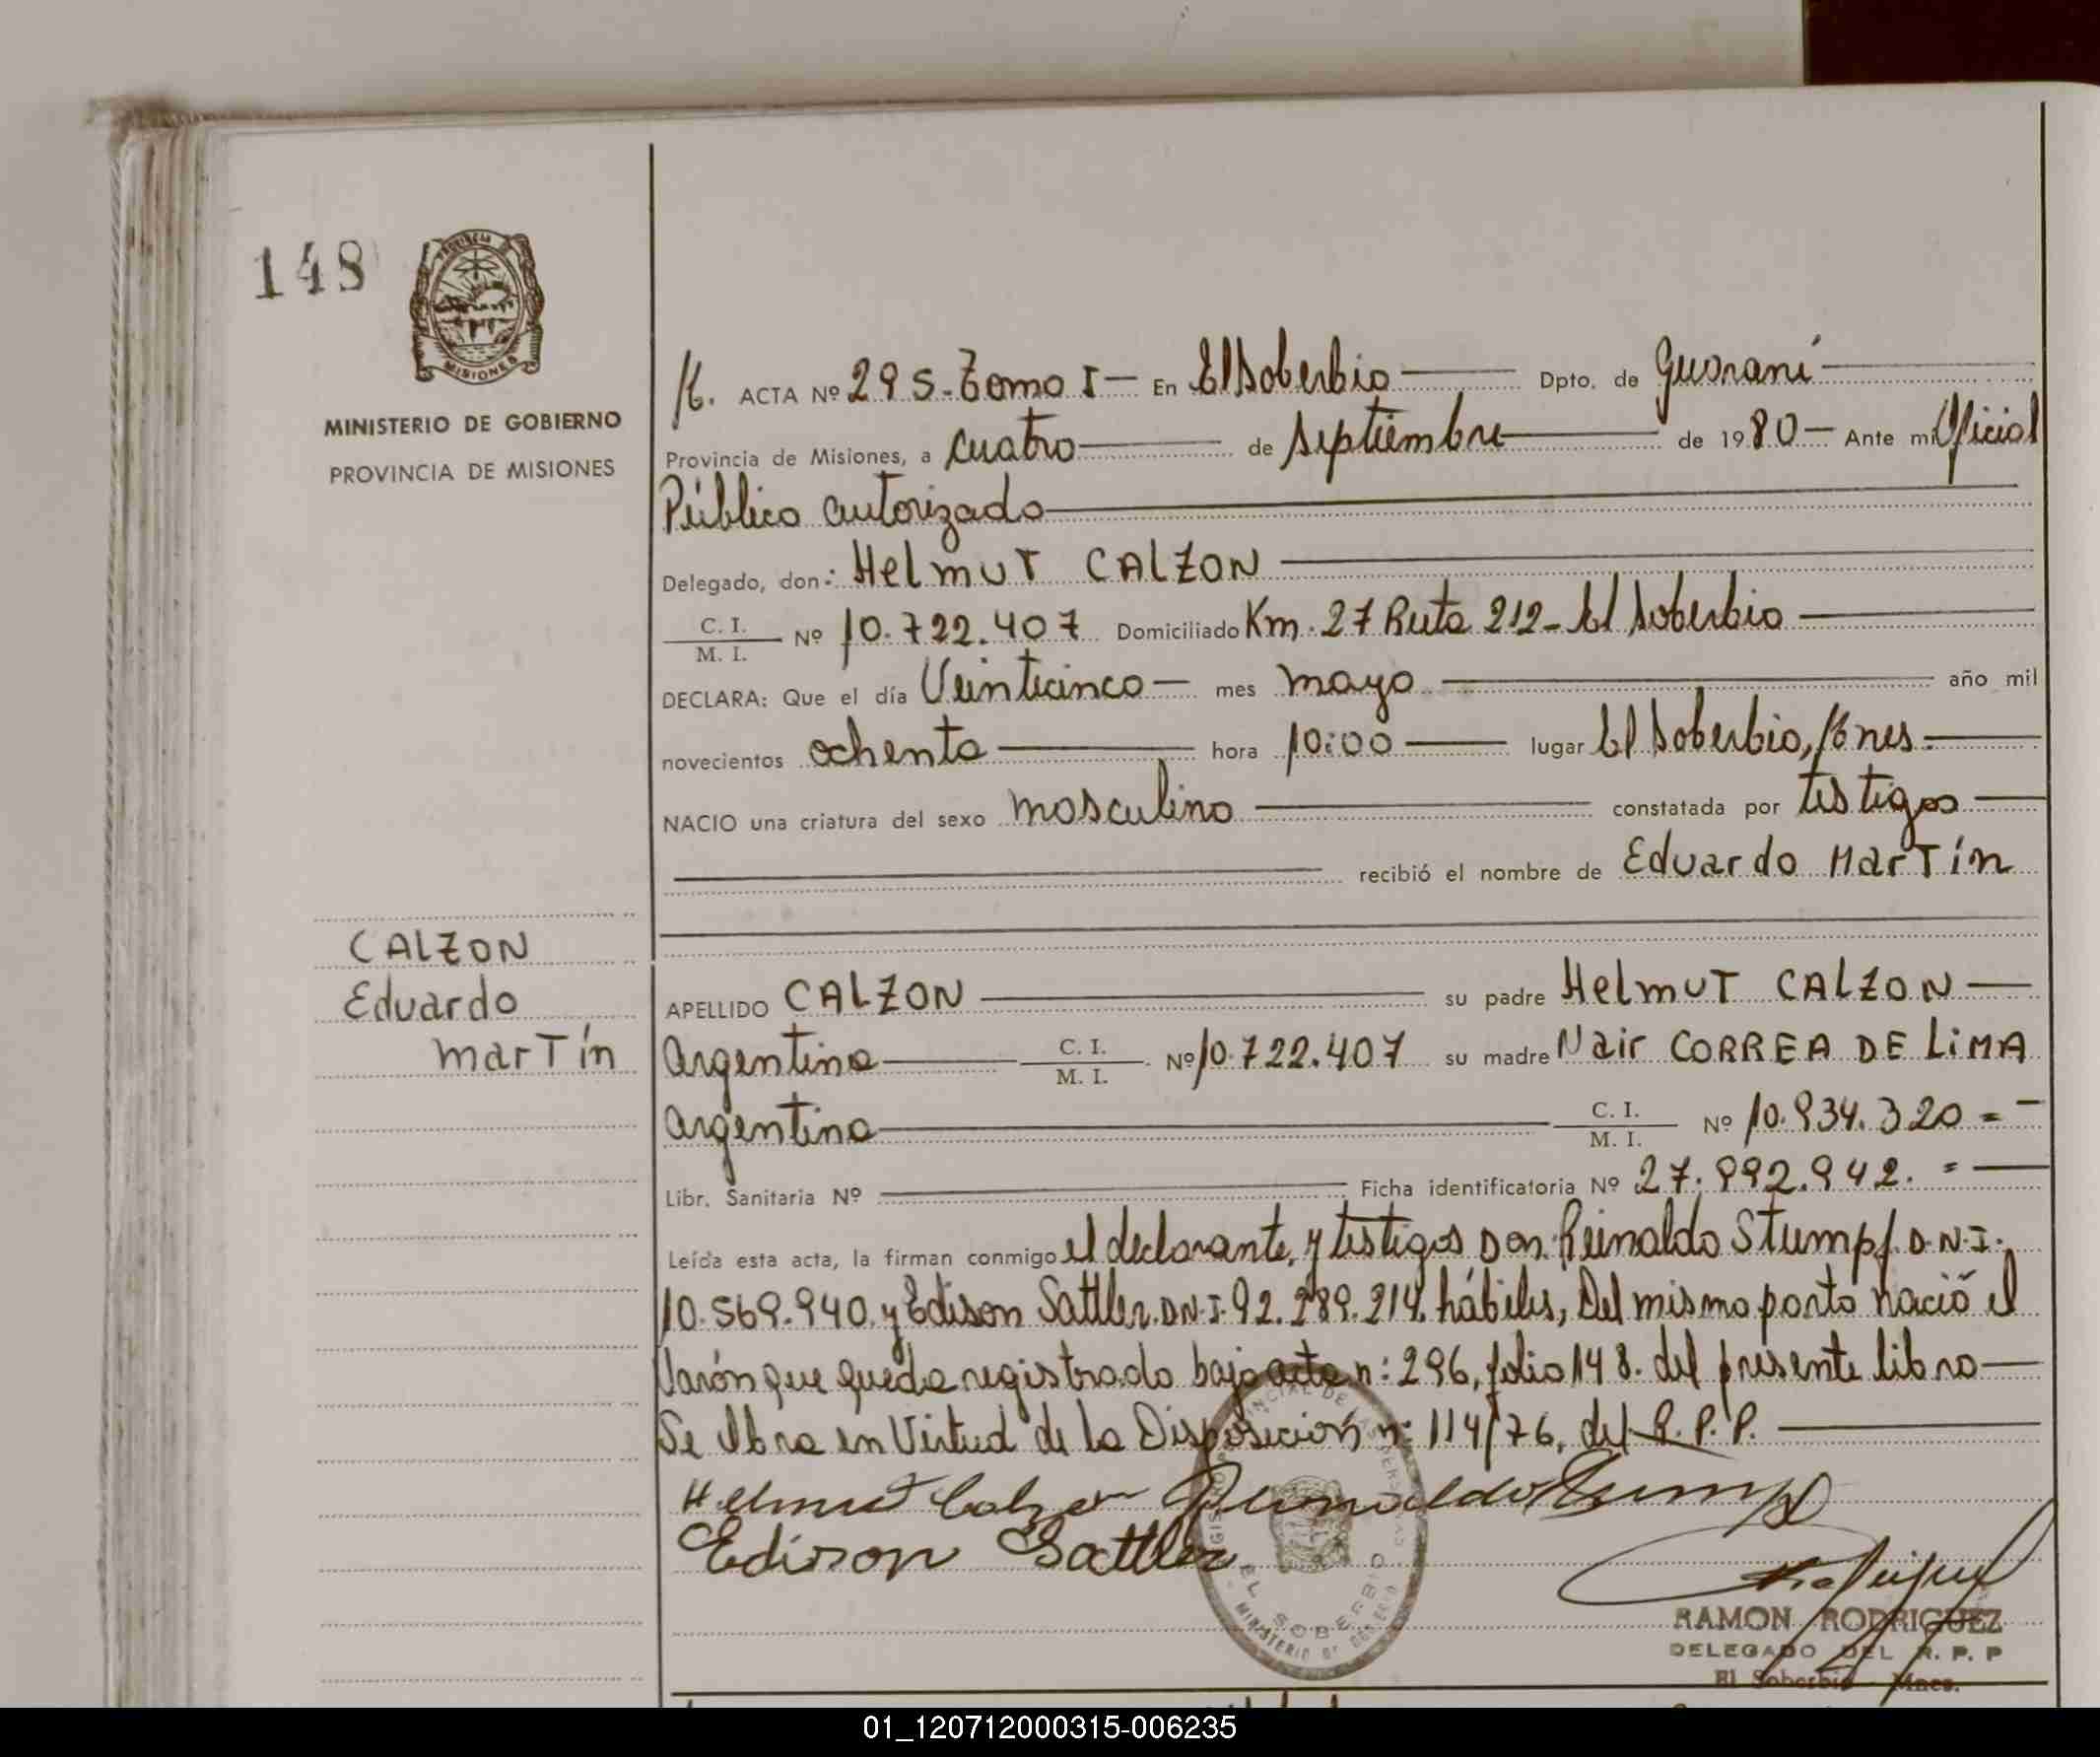 148
PROVINCIA DE
MISIONES
MINISTERIO DE GOBIERNO
PROVINCIA DE MISIONES
CALZON
Eduardo
marTín
ACTA Nº 295-Tomo I- En El Soberbio Dpto. de Guaraní
Provincia de Misiones, a cuatro de septiembre de 1980- Ante mi Oficial
Público autorizado
Delegado, don: HelmuT CALZON
C. I.
M. I. Nº 10.722.407 Domiciliado Km. 27 Ruta 212- El Soberbio
DECLARA: Que el día Veinticinco- mes mayo año mil
novecientos ochenta hora 10:00 lugar El Soberbio, Mnes.
NACIO una criatura del sexo masculino constatada por testigos
recibió el nombre de Eduardo MarTín
APELLIDO CALZON su padre HelmuT CALZON
argentino C. I.
M. I. Nº 10.722.407 su madre Nair CORREA DE LiMA
argentina C. I.
M. I. Nº 10.934.320=-
Libr. Sanitaria Nº Ficha identificatoria Nº 27.992.942.=
Leída esta acta, la firman conmigo el declarante, y testigos Don: Reinaldo Stumpf. D.N.I.
10.569.940. y Edison Sattler. D.N.I. 92.289.214. hábiles, Del mismo parto nació el
Varón que queda registrado bajo acta n: 296, folio 148. del presente libro
Se labra en Virtud de la Disposición n: 114/76, del R.P.P.
Helmut Calzon Reinaldo Stumpf
Edison Sattler
EL SOBERBIO
MINISTERIO DE GOBIERNO
RAMON RODRIGUEZ
DELEGADO DEL R. P. P
El Soberbio Mnes.
01_120712000315-006235